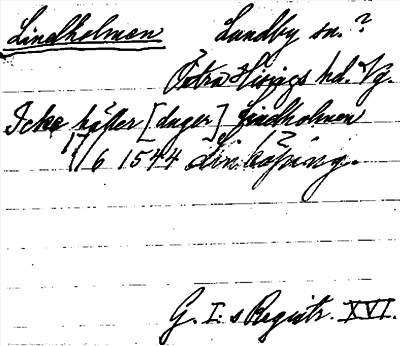 Lindholmen Lundby sn.?
Östra Hisings hd. Vg.
Icke häfter [dager] Lindholmen
17/6 1544 Linköping.
G. I:s Registr. XVI.